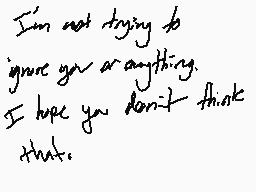 I'm not trying to
ignore you or anything.
I hope you don't think
that.